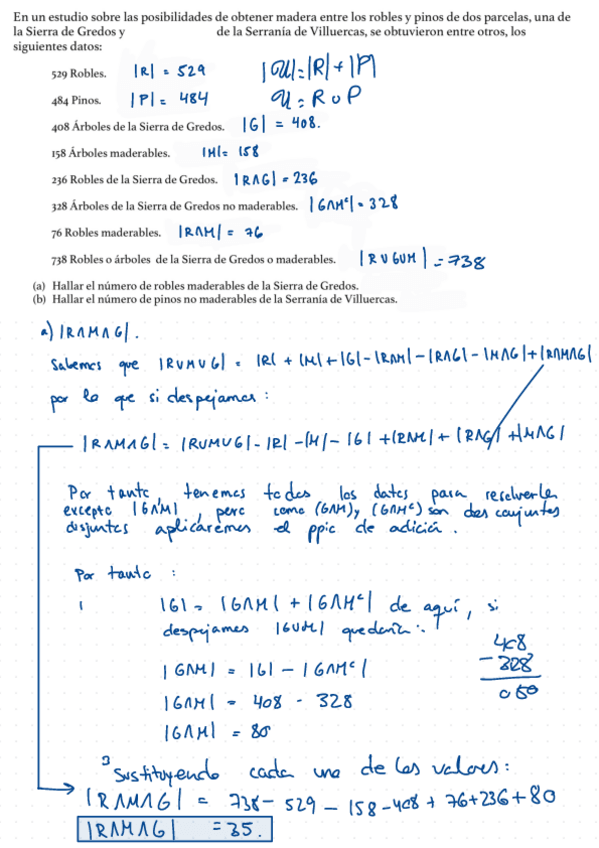 En un estudio sobre las posibilidades de obtener madera entre los robles y pinos de dos parcelas, una de
la Sierra de Gredos y de la Serranía de Villuercas, se obtuvieron entre otros, los
siguientes datos:
529 Robles. |R| = 529 |U| = |R| + |P|
484 Pinos. |P| = 484 U = R ∪ P
408 Árboles de la Sierra de Gredos. |G| = 408.
158 Árboles maderables. |M| = 158
236 Robles de la Sierra de Gredos. |R∧G| = 236
328 Árboles de la Sierra de Gredos no maderables. |G∧Mᶜ| = 328
76 Robles maderables. |R∧M| = 76
738 Robles o árboles de la Sierra de Gredos o maderables. |R∪G∪M| = 738
(a) Hallar el número de robles maderables de la Sierra de Gredos.
(b) Hallar el número de pinos no maderables de la Serranía de Villuercas.
a) |R∧M∧G|.
Sabemos que |R∪M∪G| = |R| + |M| + |G| - |R∧M| - |R∧G| - |M∧G| + |R∧M∧G|
por lo que si despejamos:
|R∧M∧G| = |R∪M∪G| - |R| - |M| - |G| + |R∧M| + |R∧G| + |M∧G|
Por tanto, tenemos todos los datos para resolverlo
excepto |G∧M|, pero como (G∧M) y (G∧Mᶜ) son dos conjuntos
disjuntos aplicaremos el ppio de adición.
Por tanto:
|G| = |G∧M| + |G∧Mᶜ| de aquí, si
despejamos |G∪M| quedaría:
|G∧M| = |G| - |G∧Mᶜ|
408
|G∧M| = 408 - 328
- 328
|G∧M| = 80
080
Sustituyendo cada uno de los valores:
|R∧M∧G| = 738 - 529 - 158 - 408 + 76 + 236 + 80
|R∧M∧G| = 35.